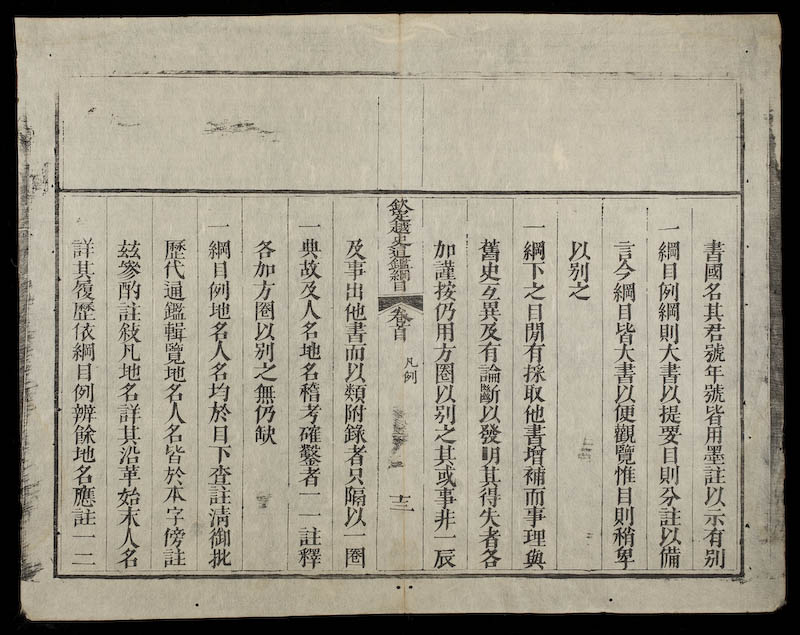 書國名其君號年號皆用墨註以示有别
一綱目例綱則大書以提要目則分註以備
言今綱目皆大書以便觀覽惟目則稍卑
以别之
一綱下之目閒有採取他書增補而事理與
舊史互異及有論斷以發明其得失者各
加謹按仍用方圈以别之其或事非一辰
欽定越史通鑑綱目
卷首
凡例
十二
及事出他書而以類附錄者只隔以一圈
一典故及人名地名稽考確鑿者一一註釋
各加方圈以别之無仍缺
一綱目例地名人名均於目下查註清御批
歷代通鑑輯覽地名人名皆於本字傍註
茲參酌註敍凡地名詳其沿革始末人名
詳其履歷依綱目例辨餘地名應註一二